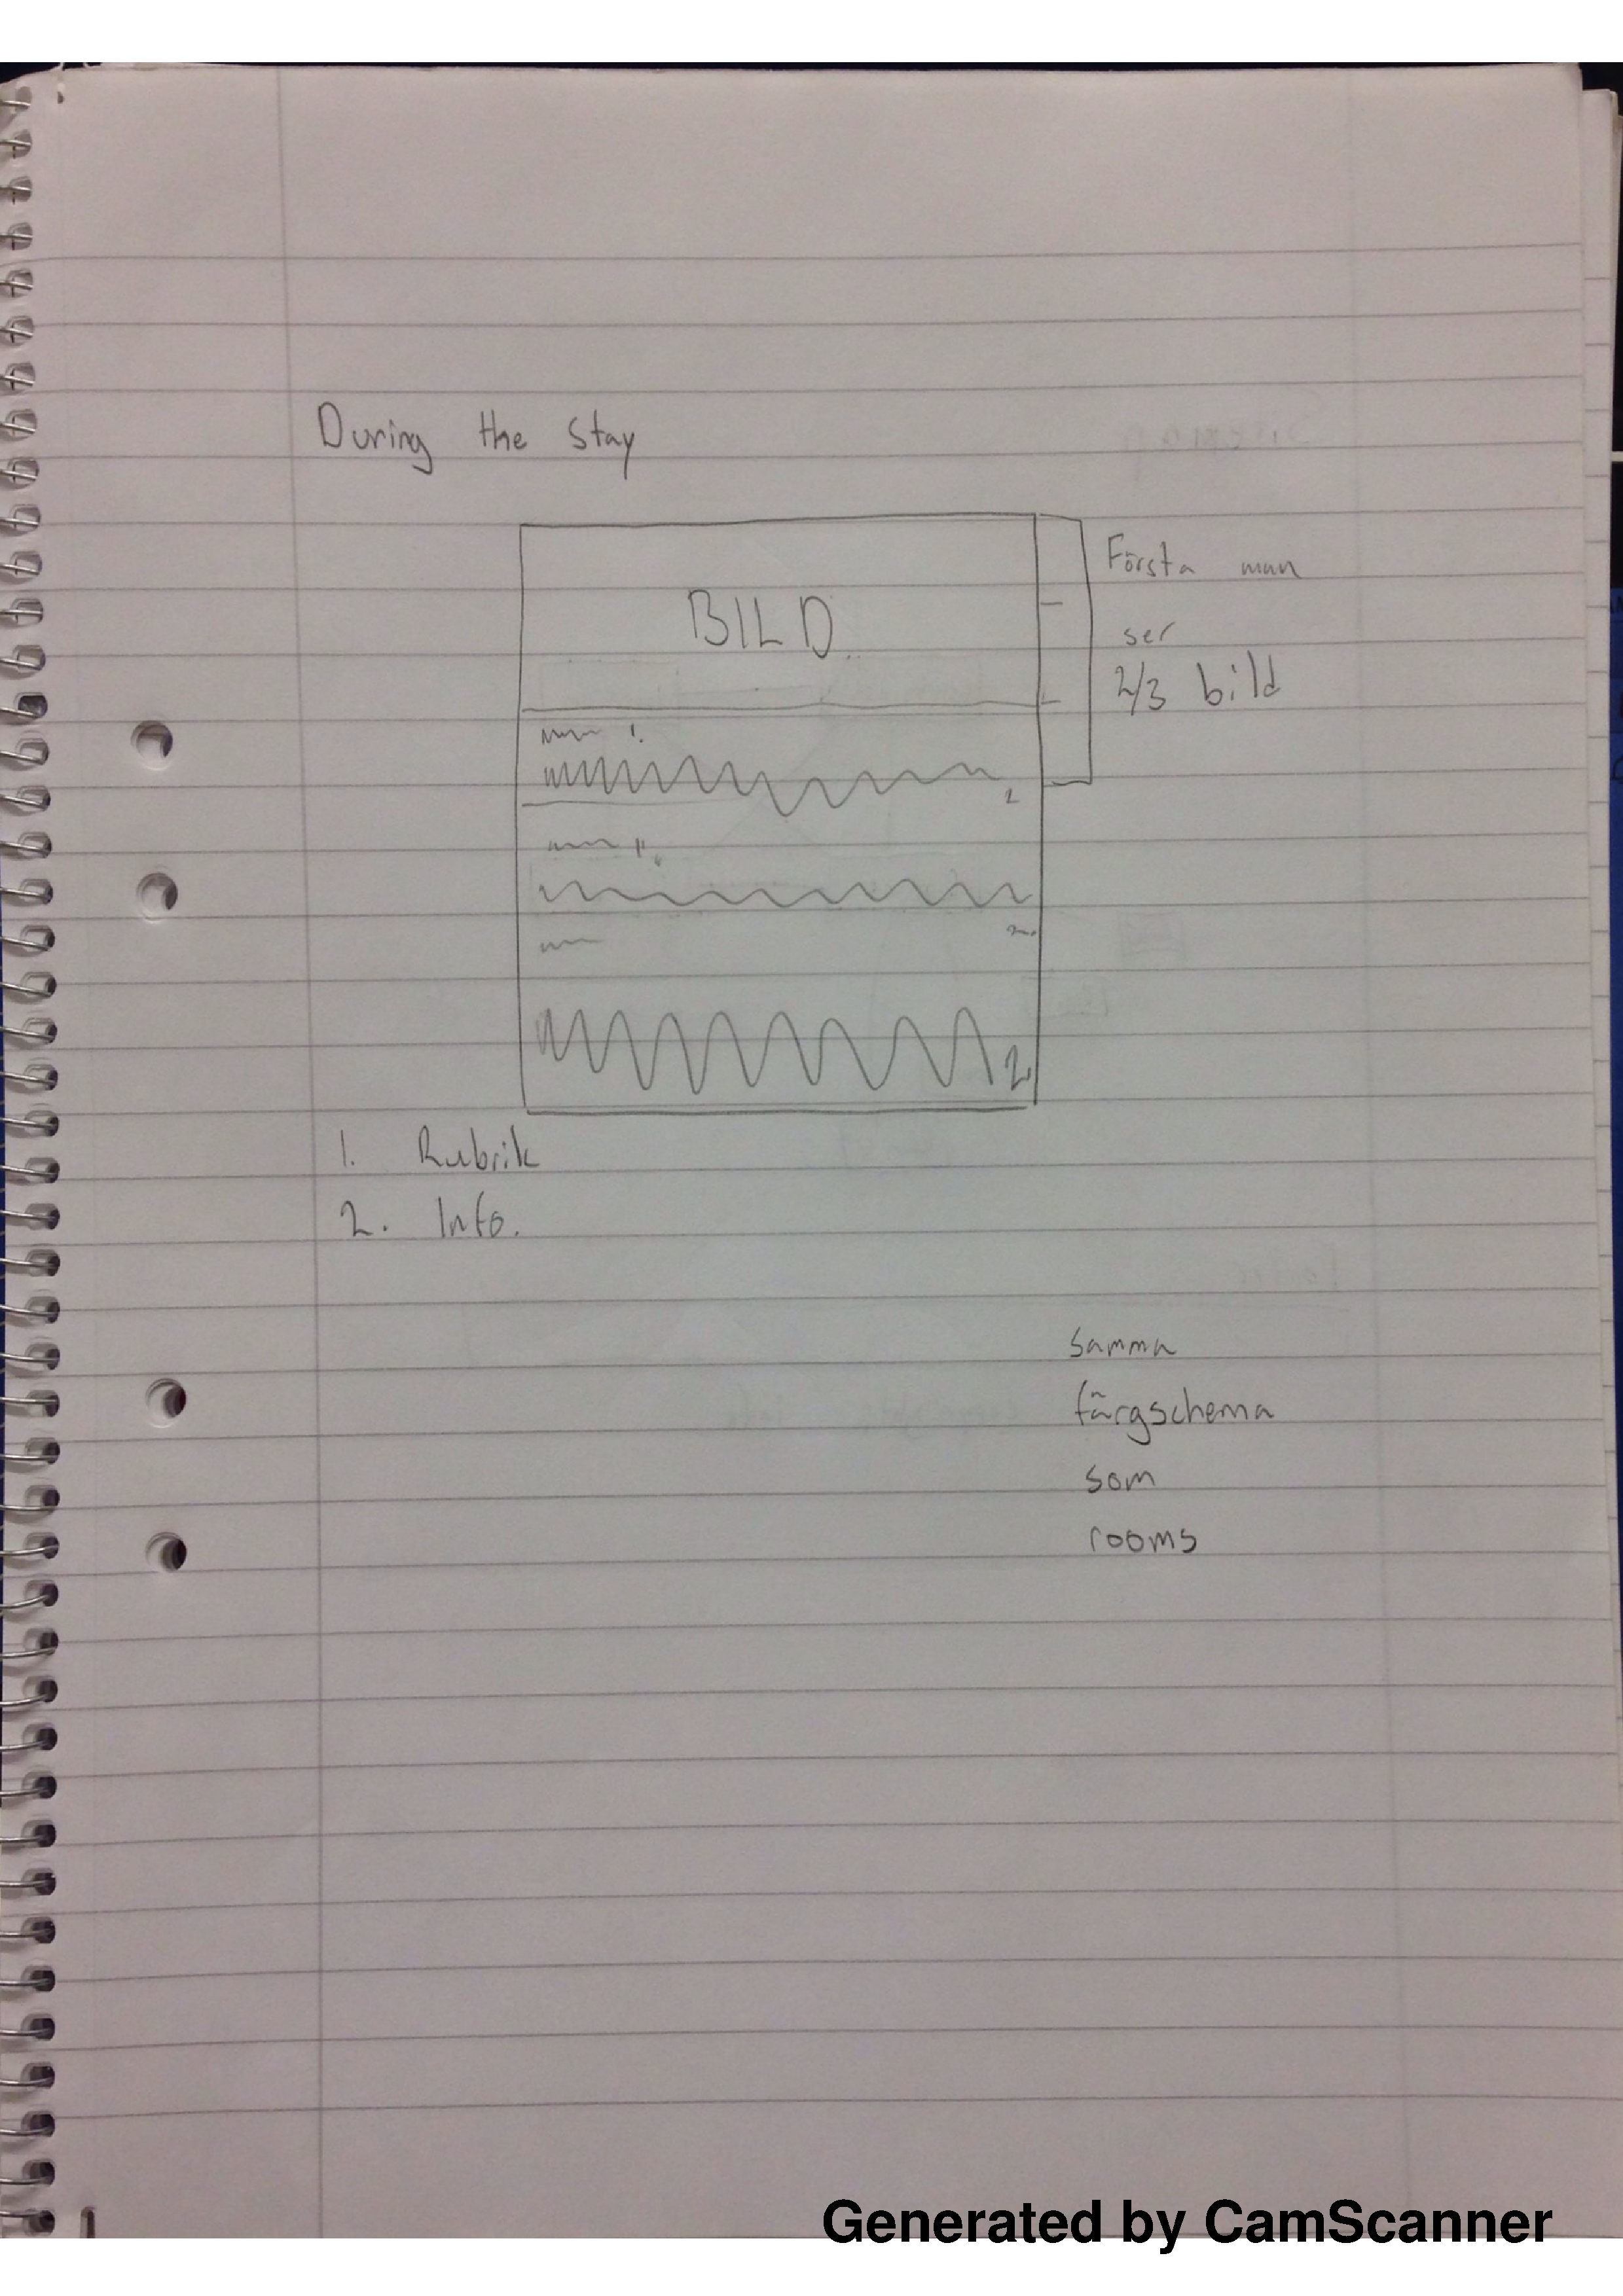 During the stay
Första man
BILD
ser
2/3 bild
1.
2
1.
2.
2
1. Rubrik
2. Info.
samma
färgschema
som
rooms
Generated by CamScanner